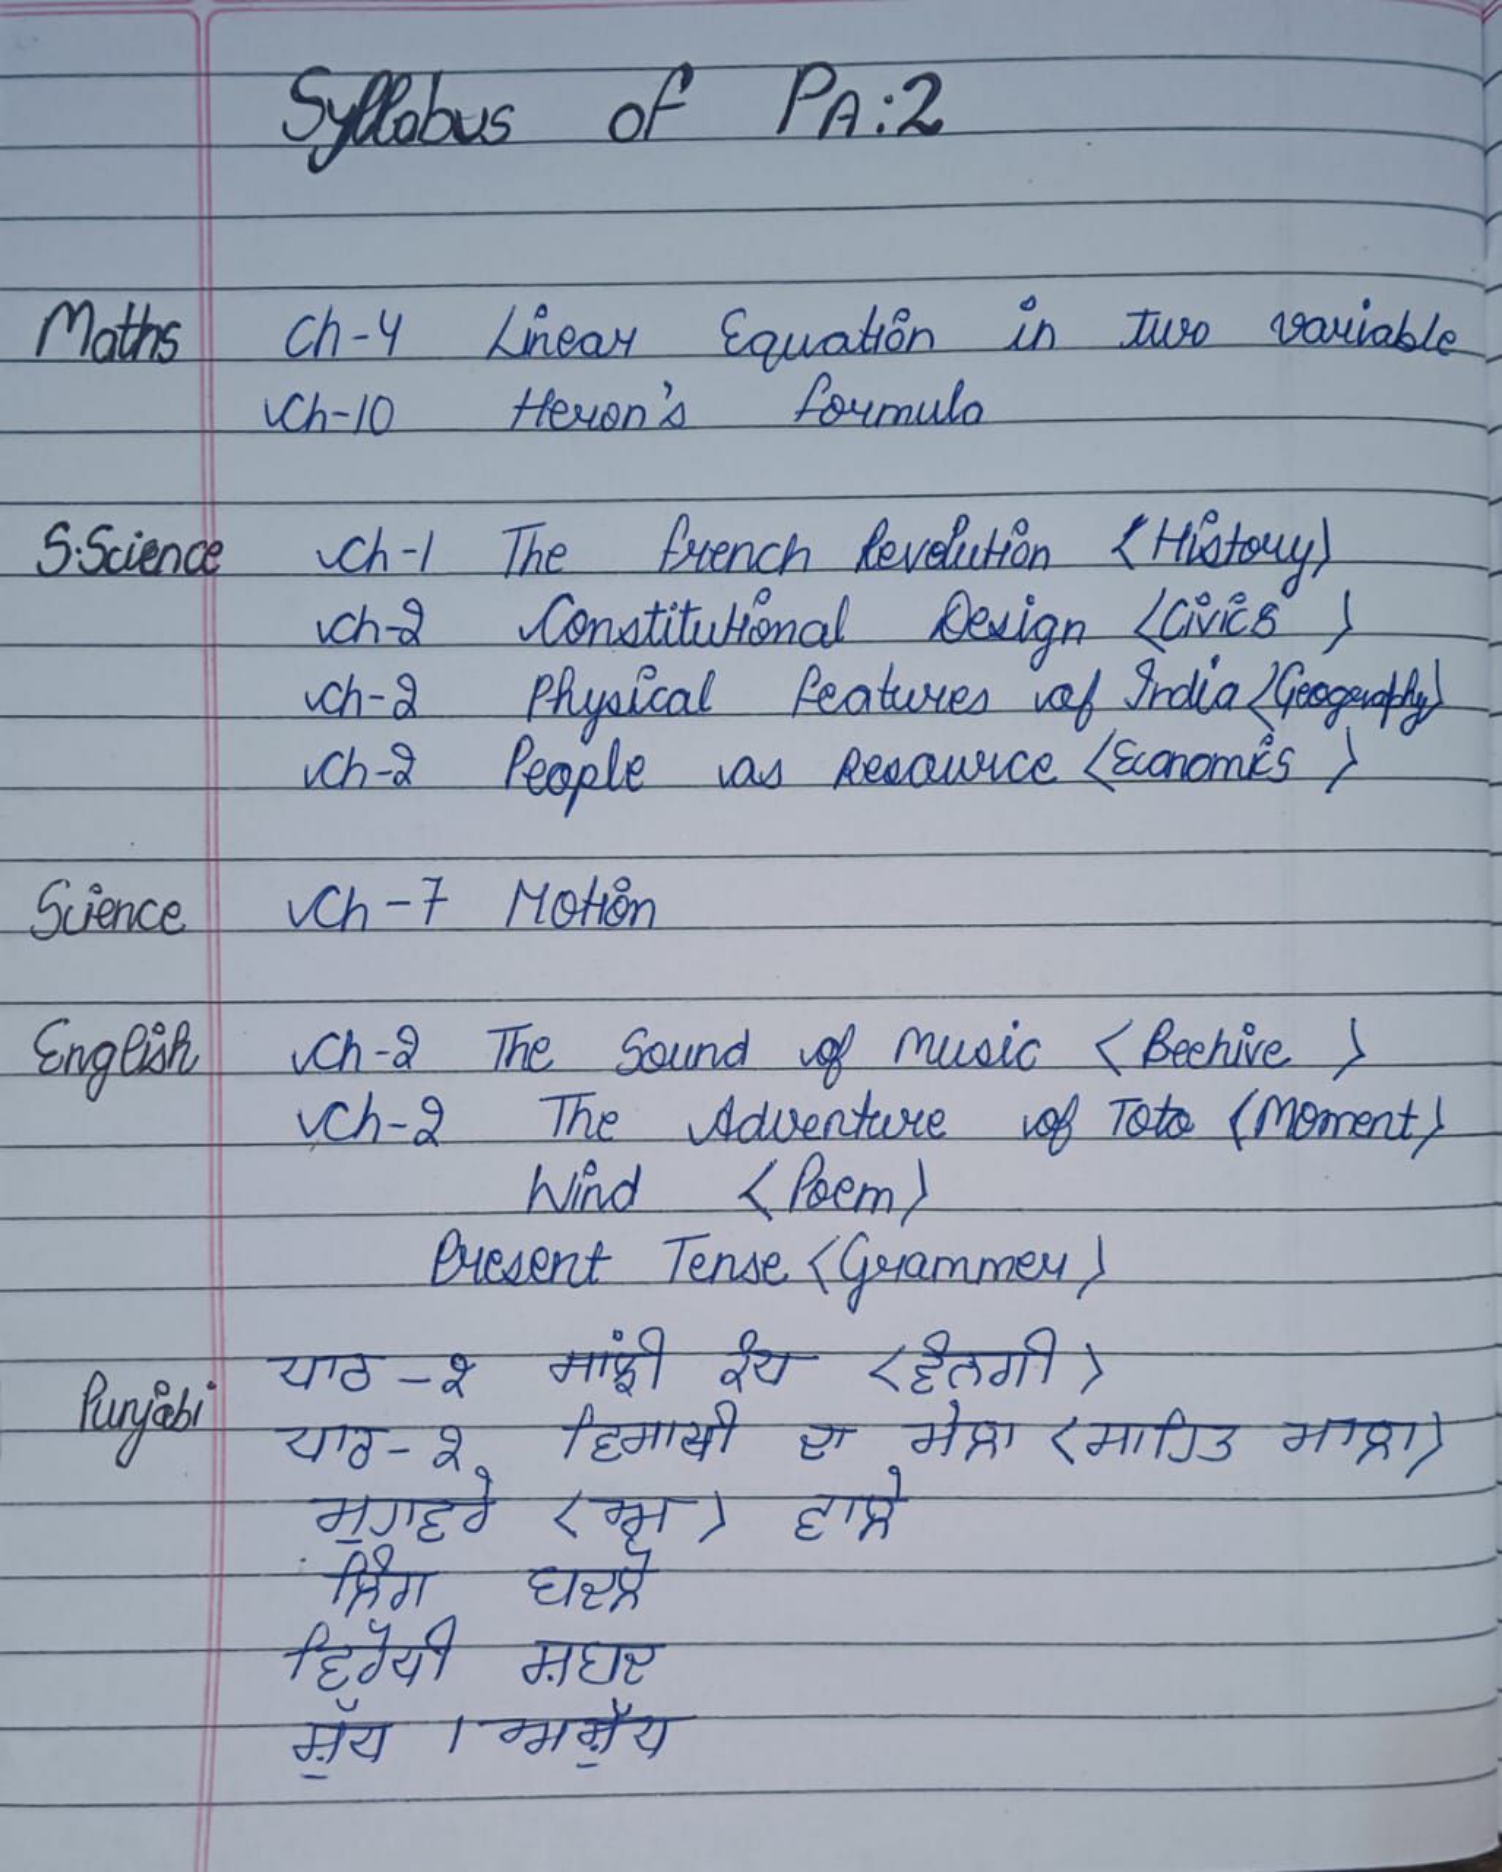 Syllabus of PA:2
Maths Ch-4 Linear Equation in two variable
Ch-10 Heron's formula
S.Science Ch-1 The french Revolution (History)
Ch-2 Constitutional Design (Civics)
Ch-2 Physical features of India (Geography)
Ch-2 People as Resource (Economics)
Science Ch-7 Motion
English Ch-2 The Sound of Music (Beehive)
Ch-2 The Adventure of Toto (Moment)
Wind (Poem)
Present Tense (Grammer)
Punjabi ਪਾਠ-੨ ਸਾਂਝੀ ਕੰਧ (ਵੰਨਗੀ)
ਪਾਠ-੨ ਵਿਸਾਖੀ ਦਾ ਮੇਲਾ (ਸਾਹਿਤ ਮਾਲਾ)
ਮੁਹਾਵਰੇ (ਅ) ਵਾਲੇ
ਲਿੰਗ ਬਦਲੋ
ਵਿਰੋਧੀ ਸ਼ਬਦ
ਸ਼ੁੱਧ । ਅਸ਼ੁੱਧ